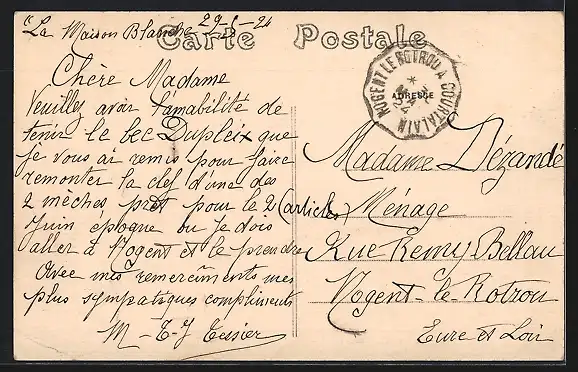 "La Maison Blanche 29-5-24
Carte Postale
ADRESSE
NOGENT LE ROTROU A COURTALAIN
Chère Madame
Veuillez avoir l'amabilité de
tenir le bec Dupleix que
je vous ai remis pour faire
remonter la clef d'une des
2 mèches prêt pour le 2
Juin époque ou je dois
aller à Nogent et le prendre
Avec mes remerciments mes
plus sympatiques compliments
M-T-J Tessier
Madame Dézandé
(articles) Ménage
Rue Remy Bellau
Nogent-le-Rotrou
Eure et Loir